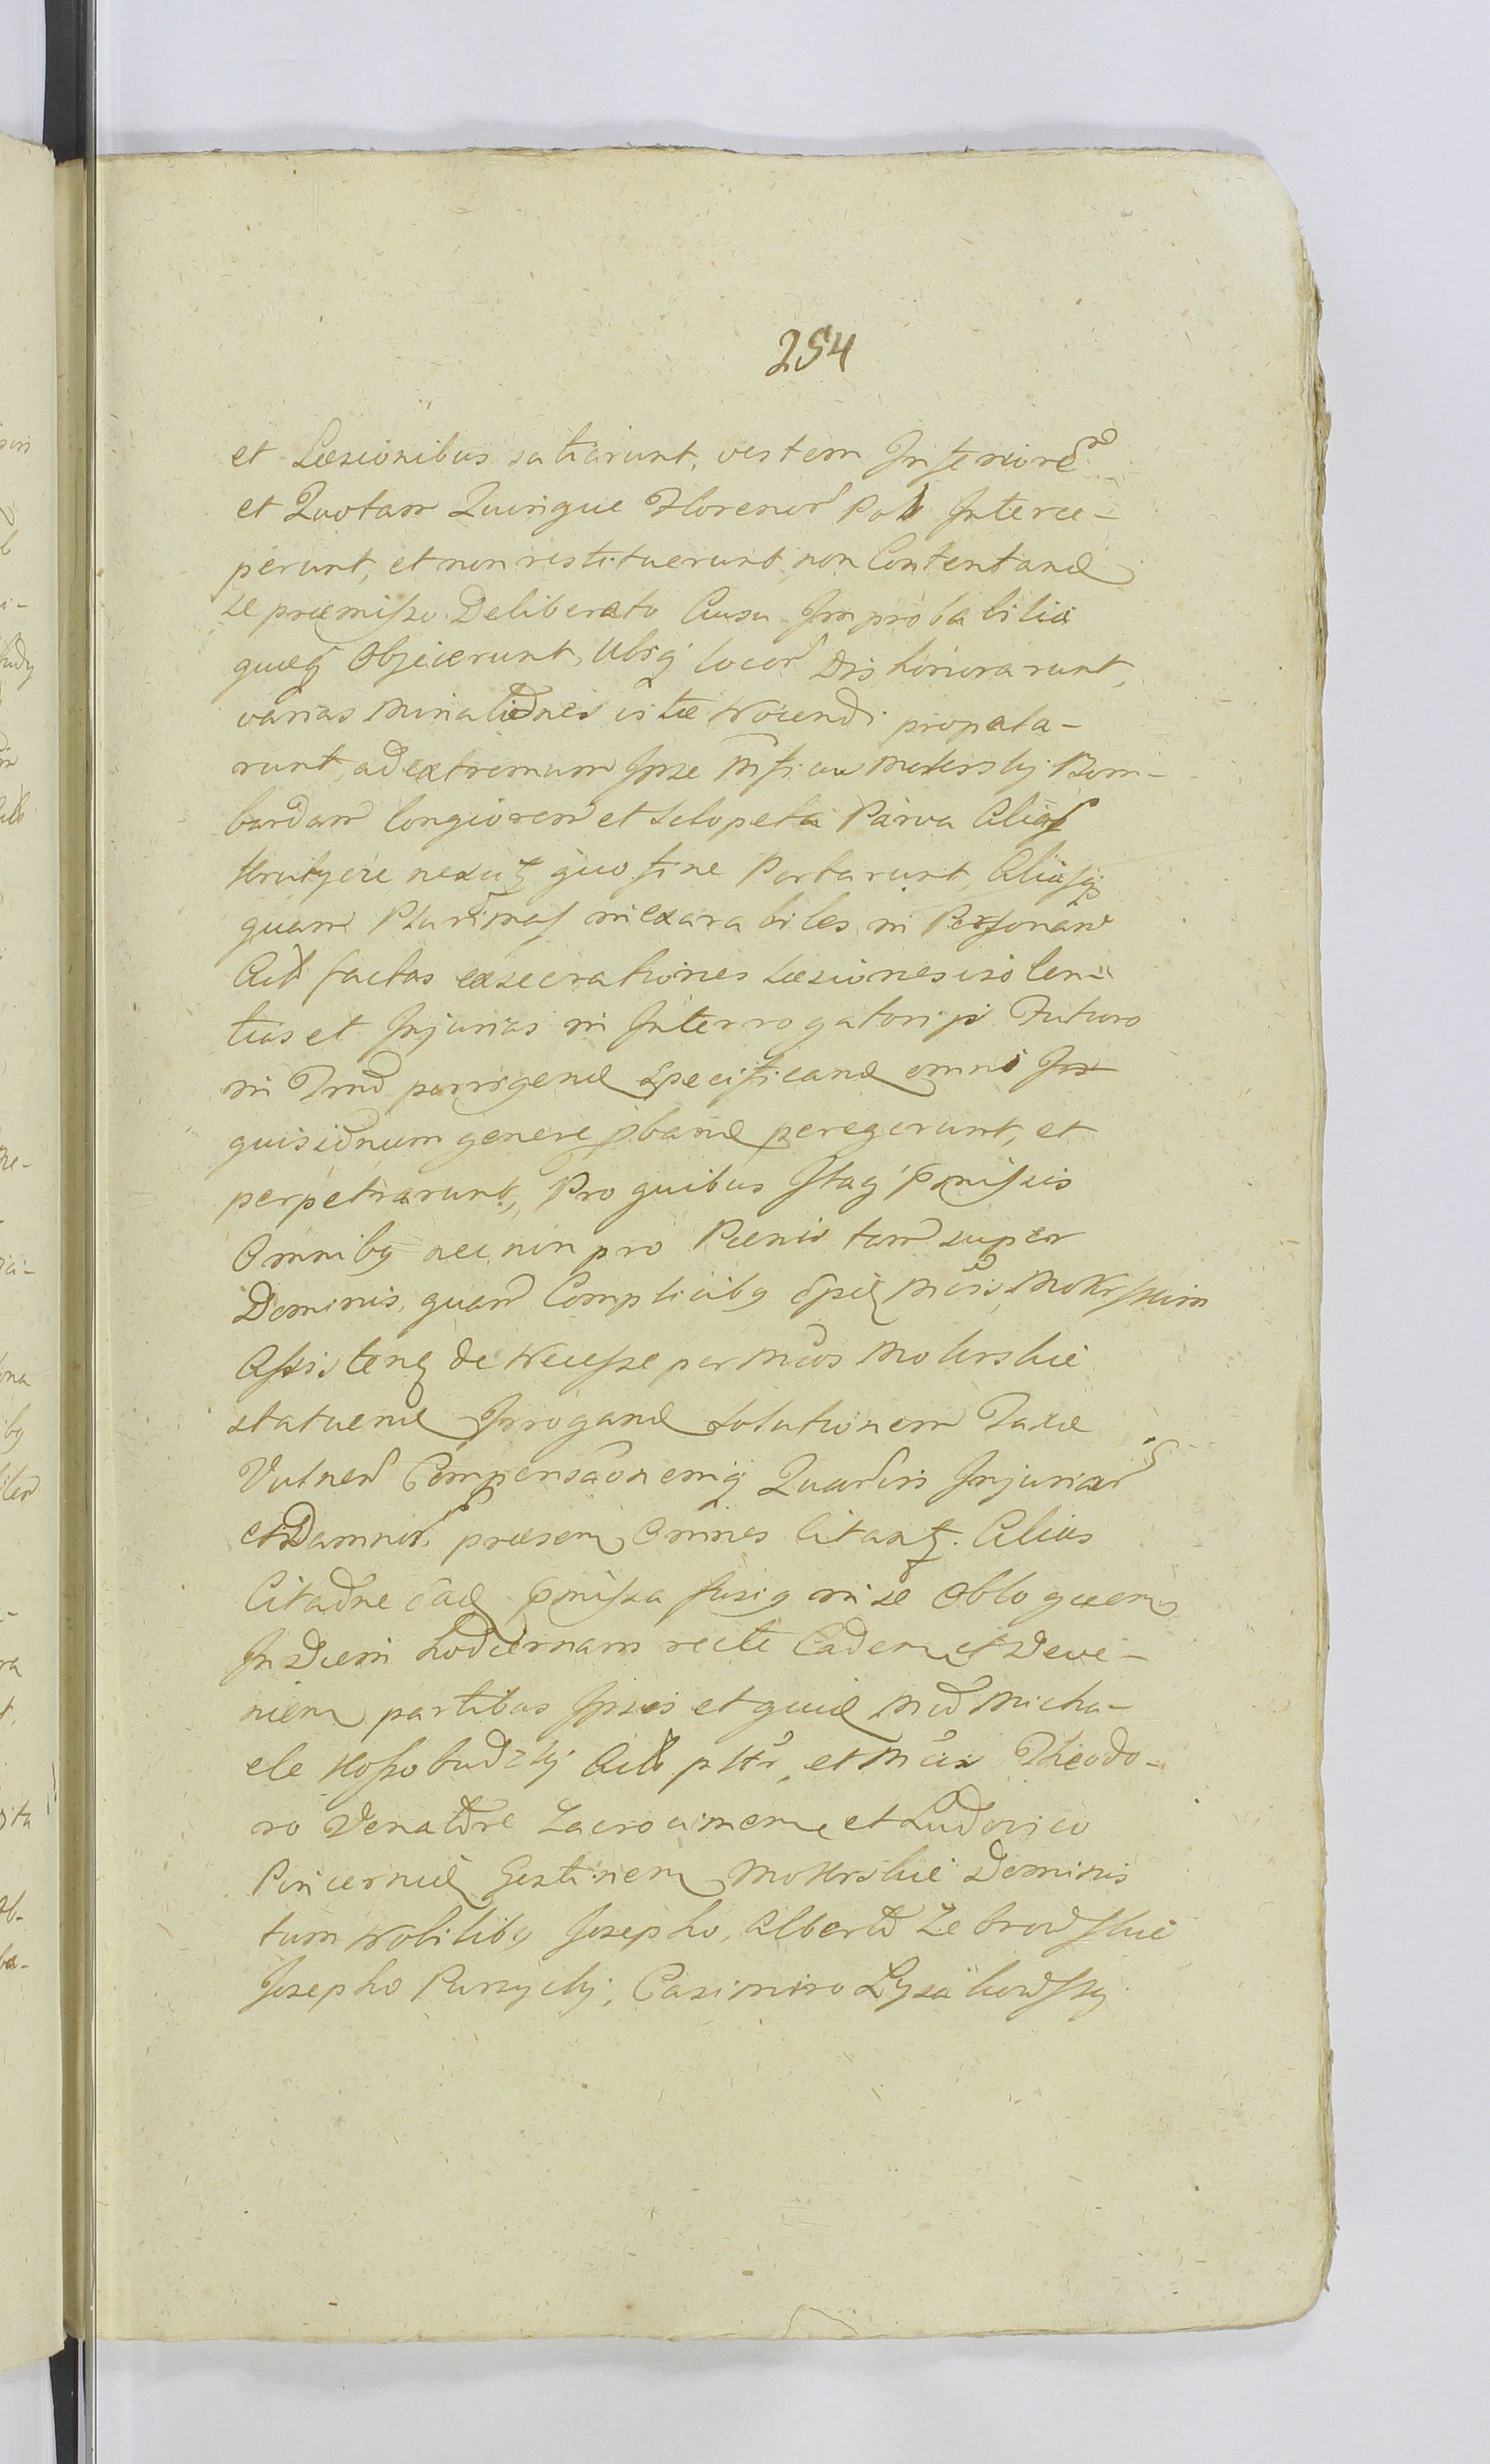 254
et Læsionibus satiarunt, vestem Inferiorem
et Quotam Quinque Florenor Pol Interce-
perunt, et non restituerunt, non Contentand
se præmisso Deliberato Ausu Improbabilia
quæq Objecerunt, Ubiq locor Dishonorarunt,
varias minationes vitæ Nocendi propala-
runt, ad extremum Ipse Mokrsky Bom-
bardam longiorem et sclopeta Parva Alias
Krucyce quo fine Portarunt, Aliasq
quam Plurimas inexarabiles in Personam
Act factas exsecrationes Læsiones isolen-
tias et Injurias in Interrogatorijs Futuro
in Tmd porrigend Specificand omni In-
quisionum genere pband peregerunt, et
perpetrarunt, Pro quibus Itaq pmissis
Omnibq nec non pro Pænis tam super
Dominis, quam Complicibq Mokrskim
Assisten de Necesse per Mcos Mokrskie
statuend Irrogand Solutionem Taxæ
Vulner Compensaonemq Quarum Injuriar
et Damnor præsen Omnes Citant. Alias
Citaone ead pmissa fusiq in se Obloquen
In Diem hodiernam recte Caden et Deve-
nien partibus Ipsis et quid Mco Micha-
ele Kossobudzky Act pttr, et Mcis Theodo-
ro Venatore Zacrocimen et Ludovico
Pincernid Gestinen Mokrskie Dominis
tum Nobilibq Josepho, Alberto Zebrowskie
Josepho Purzycky, Casimiro Lysakowsky